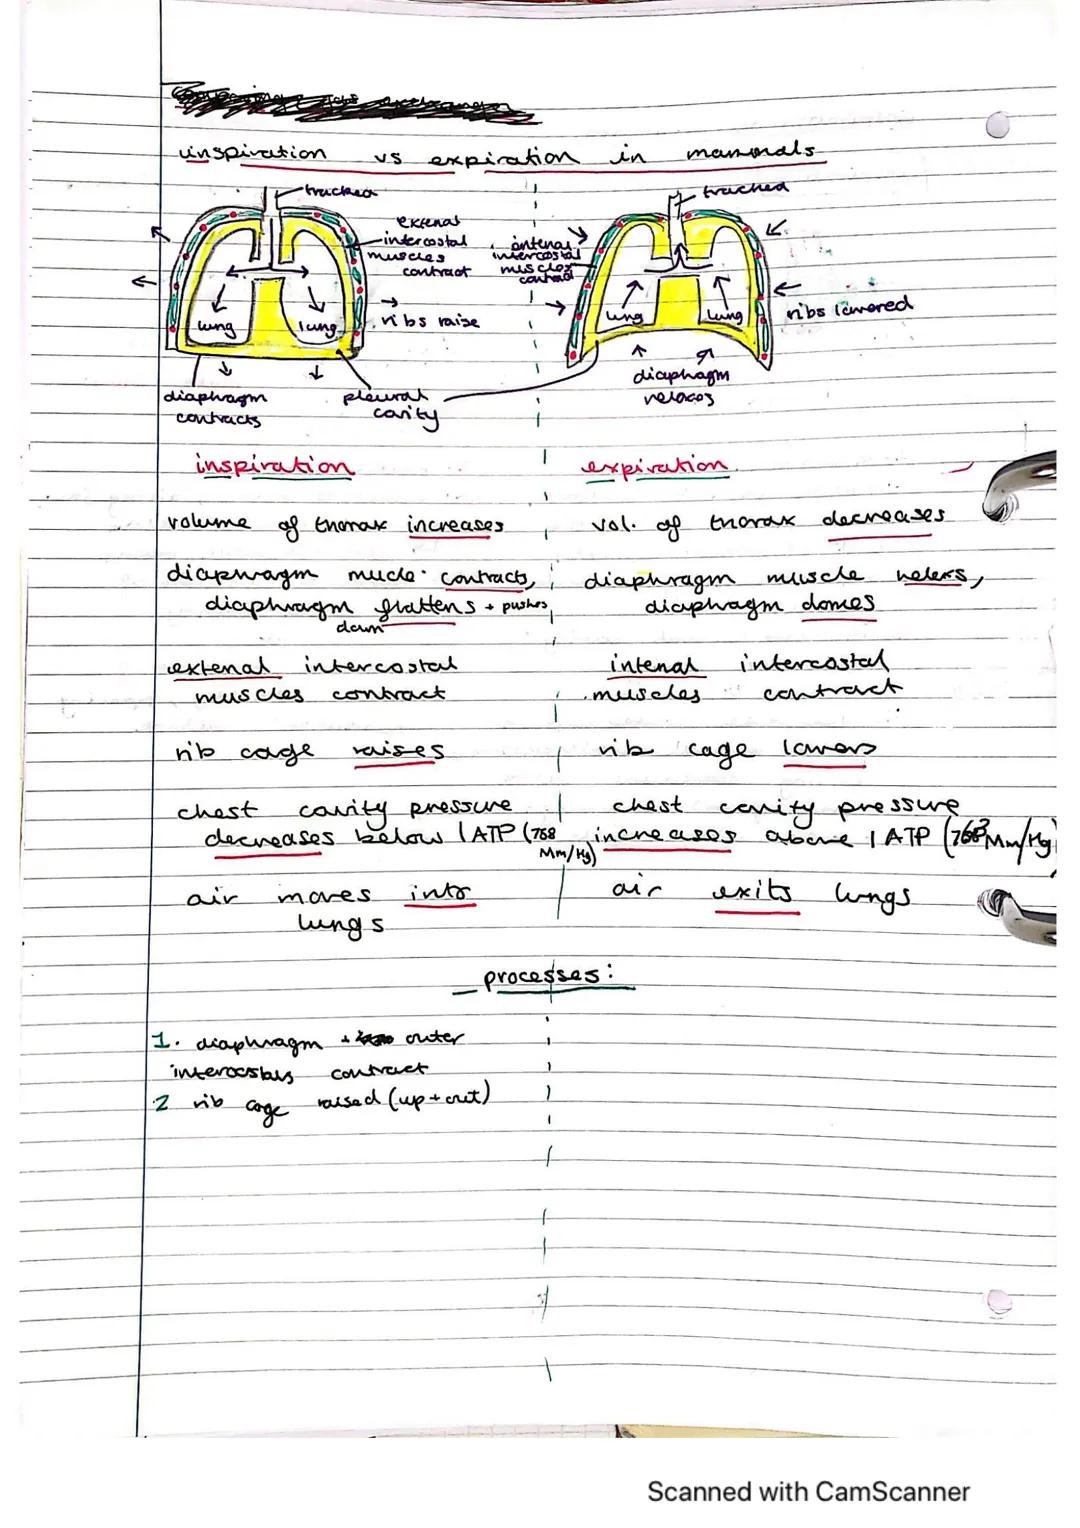 inspiration vs expiration in mammals
trachea
trachea
external
intercostal
muscles
contract
internal
intercostal
muscles
contract
ribs raise
ribs lowered
lung
lung
lung
lung
diaphragm
contracts
pleural
cavity
diaphragm
relaxes
inspiration
expiration
volume of thorax increases
vol. of thorax decreases
diaphragm mucle contracts,
diaphragm flattens + pushes
down
diaphragm muscle relaxes,
diaphragm domes
external intercostal
muscles contract
internal intercostal
muscles contract
rib cage raises
rib cage lowers
chest cavity pressure
decreases below 1 ATP (768
Mm/Hg)
chest cavity pressure
increases above 1 ATP (Mm/Hg)
air moves into
lungs
air exits lungs
processes:
1. diaphragm + outer
contract
2 rib cage raised (up + out)
Scanned with CamScanner